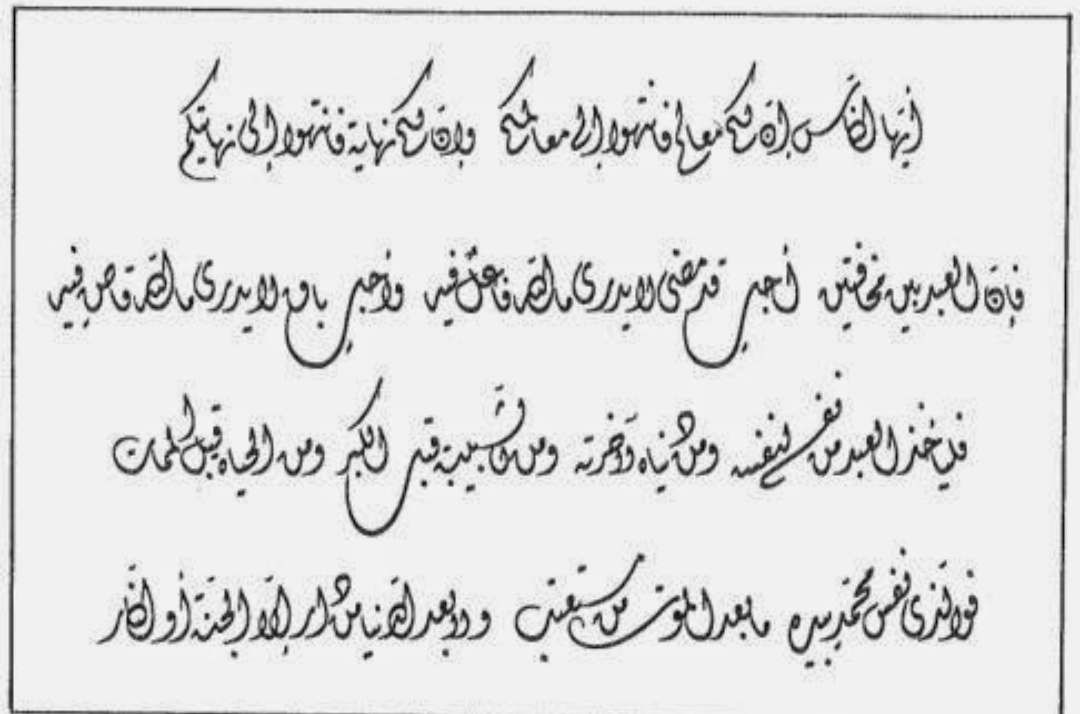 أيها الناس إن لكم معالم فانتهوا إلى معالمكم وإن لكم نهاية فانتهوا إلى نهايتكم
فإن العبد بين مخافتين أجل قد مضى لا يدرى ما الله فاعل فيه وأجل باق لا يدرى ما الله قاض فيه
فليأخذ العبد من نفسه لنفسه ومن دنياه لآخرته ومن الشبيبة قبل الكبر ومن الحياة قبل الممات
فوالذى نفس محمد بيده ما بعد الموت من مستعتب ولا بعد الدنيا من دار إلا الجنة أو النار